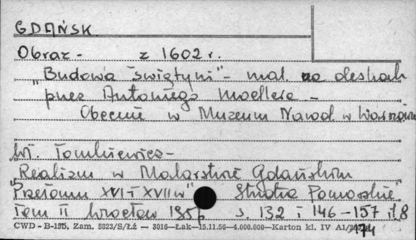 GDAŃSK
Obraz - z 1602 r.
"Budowa świątyni" - mal. na deskach
przez Antoniego Moellera -
Obecnie w Muzeum Narod w Warszawie
Wł. Tomkiewicz -
Realizm w Malarstwie Gdańskim
"Przełomu XVI i XVII w" Studia Pomorskie
Tom II Wrocław 195 s. 132 i 146-157 il. 8
CWD - B-155. Zam. 5823/S/Łź - 3016-Łak-15.11.50-4.000.000-Karton kl. IV A1/